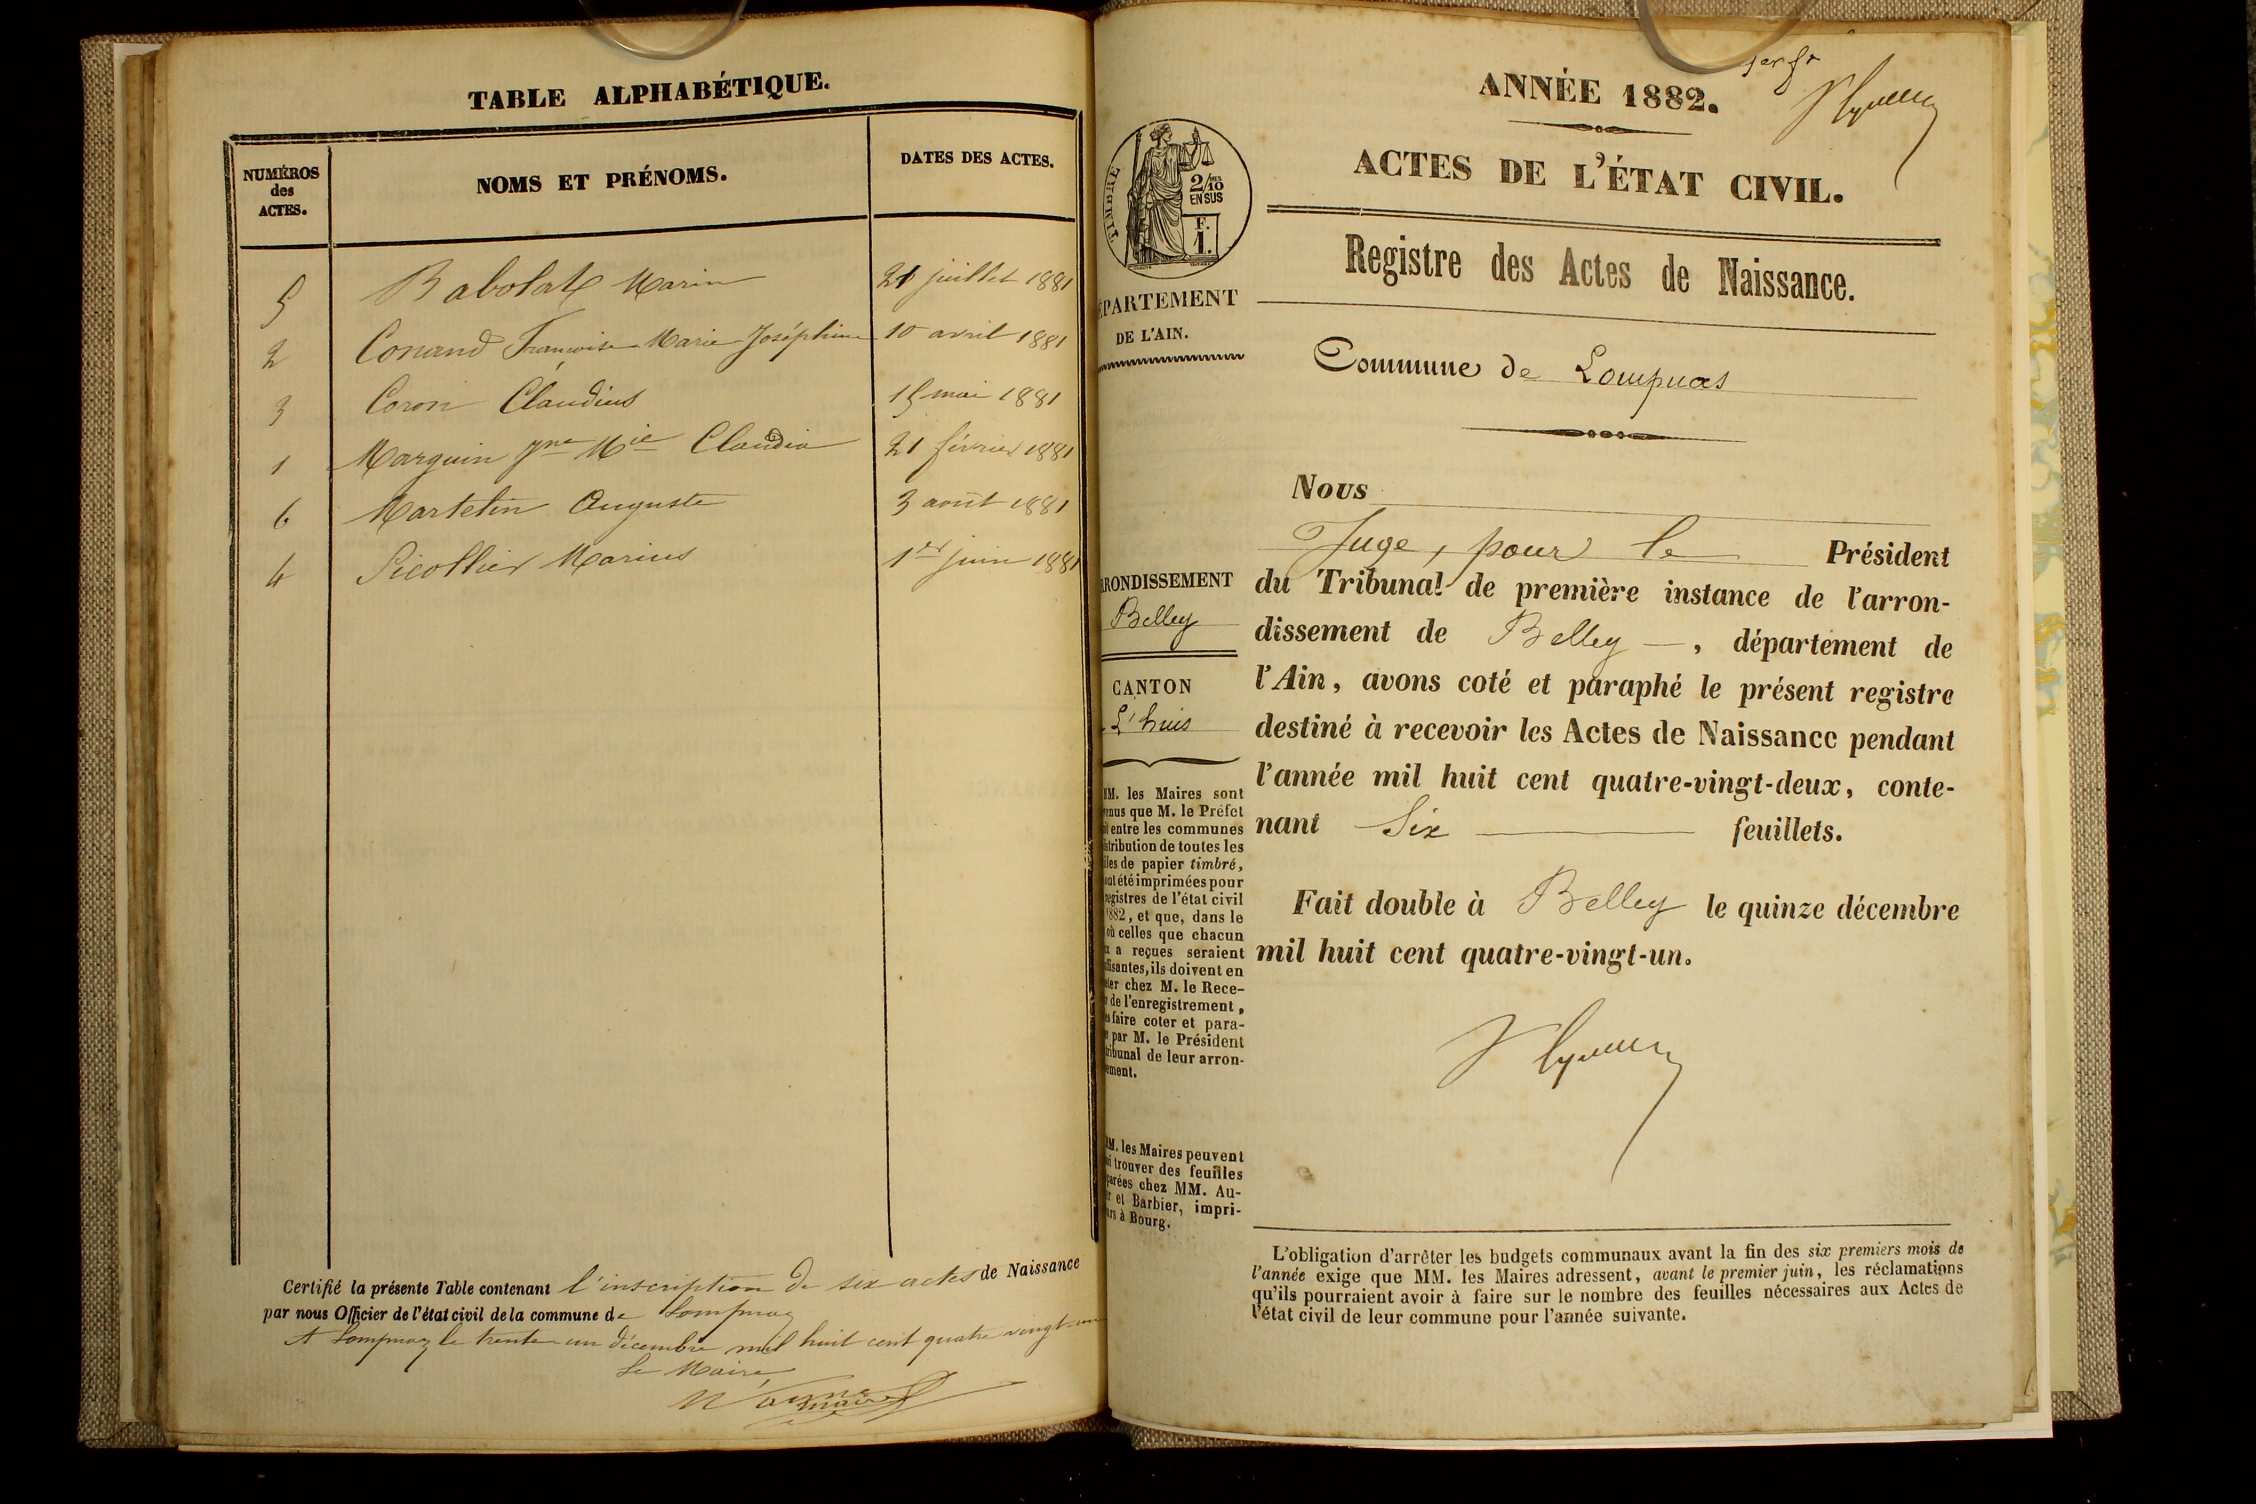 TABLE ALPHABÉTIQUE.
NUMÉROS
des
ACTES.
NOMS ET PRÉNOMS.
DATES DES ACTES.
5 Babolat Marin 21 juillet 1881
2 Conand Françoise Marie Joséphine 10 avril 1881
3 Coron Claudius 15 mai 1881
1 Marguin Mie Claudia 21 février 1881
6 Martelin Auguste 3 août 1881
4 Sicollier Marius 1er juin 1881
Certifié la présente Table contenant l'inscription de six actes de Naissance
par nous Officier de l'état civil de la commune de Lompnaz
A Lompnaz le trente un décembre mil huit cent quatre vingt-un
Le Maire
ANNÉE 1882.
ACTES DE L'ÉTAT CIVIL.
TIMBRE
2/10
EN SUS
F.
1.
Registre des Actes de Naissance.
ÉPARTEMENT
DE L'AIN.
Commune de Lompnas
Nous
Juge, pour le Président
du Tribunal de première instance de l'arron-
dissement de Belley —, département de
l'Ain, avons coté et paraphé le présent registre
destiné à recevoir les Actes de Naissance pendant
l'année mil huit cent quatre-vingt-deux, conte-
nant Six feuillets.
Fait double à Belley le quinze décembre
mil huit cent quatre-vingt-un.
RRONDISSEMENT
Belley
CANTON
L'huis
MM. les Maires sont
enus que M. le Préfet
entre les communes
stribution de toutes les
lles de papier timbré,
ont été imprimées pour
registres de l'état civil
1882, et que, dans le
où celles que chacun
x a reçues seraient
ffisantes, ils doivent en
eter chez M. le Rece-
r de l'enregistrement,
es faire coter et para-
r par M. le Président
ribunal de leur arron-
ement.
MM. les Maires peuvent
si trouver des feuilles
parées chez MM. Au-
r et Barbier, impri-
urs à Bourg.
L'obligation d'arrêter les budgets communaux avant la fin des six premiers mois de
l'année exige que MM. les Maires adressent, avant le premier juin, les réclamations
qu'ils pourraient avoir à faire sur le nombre des feuilles nécessaires aux Actes de
l'état civil de leur commune pour l'année suivante.